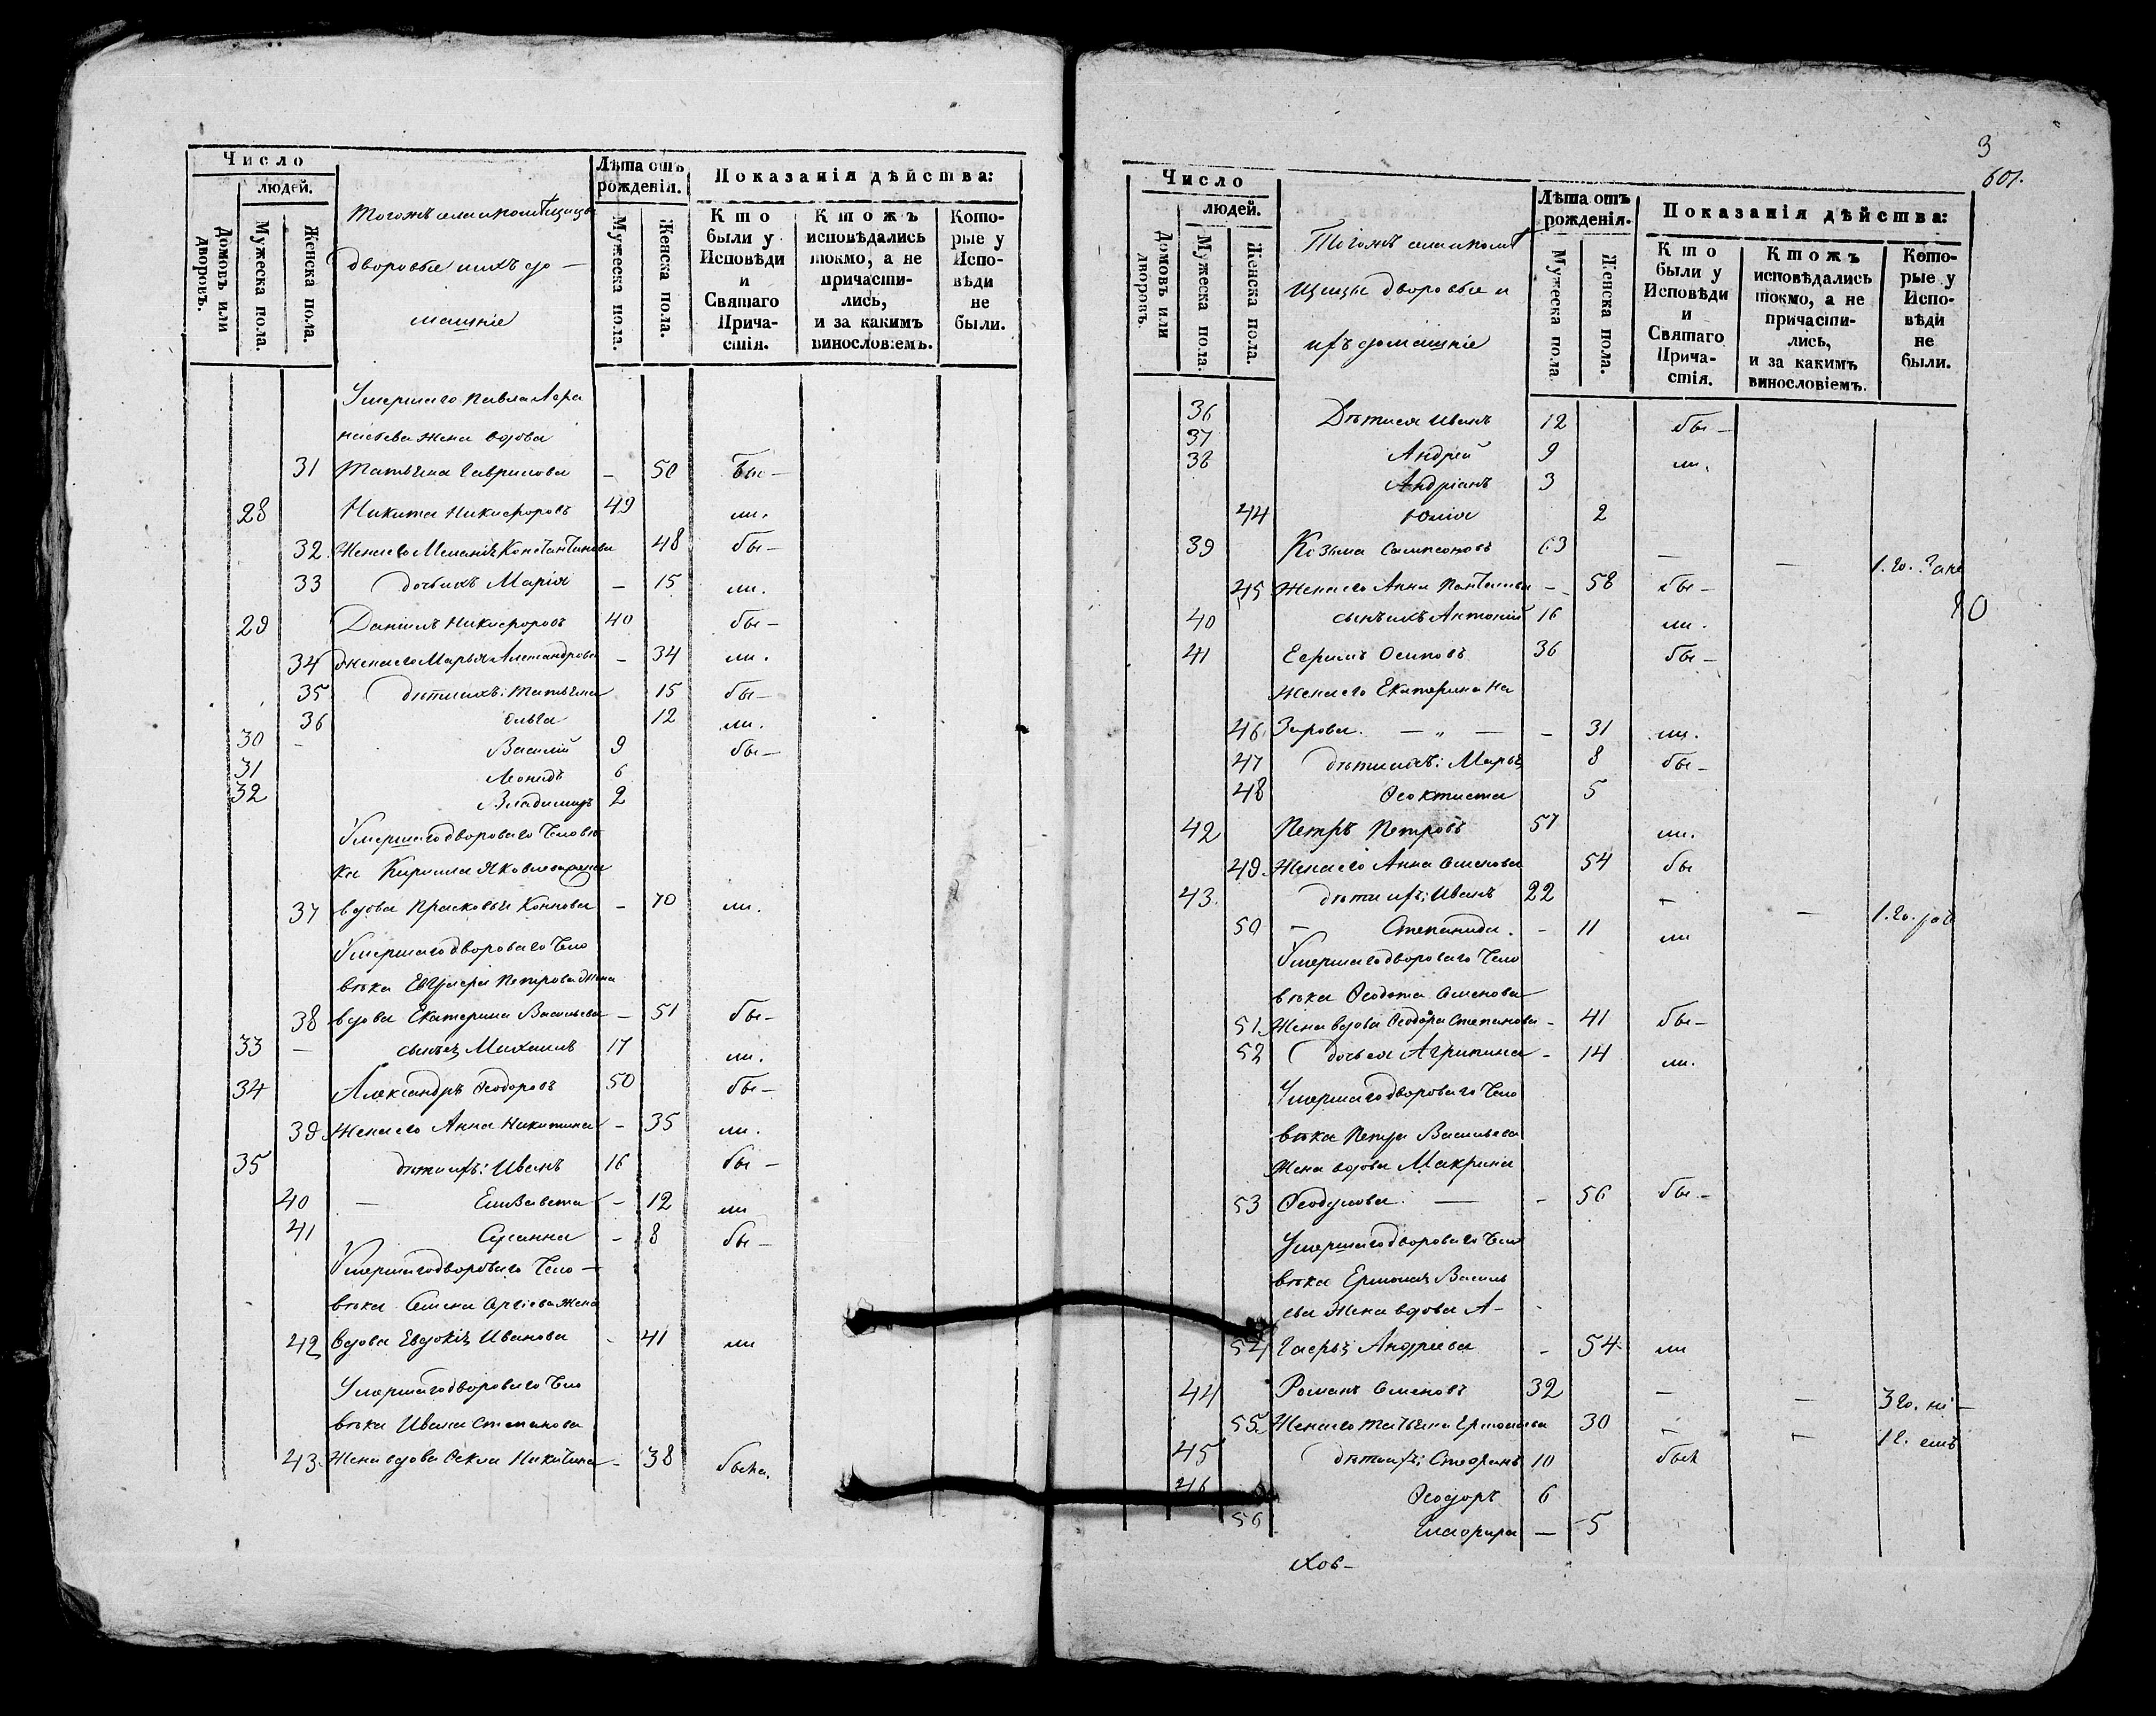 Число
людей.
Домовъ или дворовъ.
Мужеска пола.
Женска пола.
Тогожъ села помѣщицы
дворовые и ихъ до—
машніе
Лѣта отъ рожденія.
Мужеска пола.
Женска пола.
Показанія дѣйства:
Кто были у Исповѣди и Святаго Причастія.
Ктожъ исповѣдались токмо, а не причастились, и за какимъ винословіемъ.
Которые у Исповѣди не были.
Умершаго Павла Афа
насьева жена вдова
31 Татьяна Гаврилова – 50 бы–
28 Никита Никифоровъ 49 ли.
32 Жена его Меланія Константинова 48 бы–
33 дочь ихъ Марія – 15 ли.
29 Даніилъ Никифоровъ 40 бы–
34 жена его Марья Александрова – 34 ли.
35 дѣти ихъ: Татьяна 15 бы–
36 Ольга 12 ли.
30 – Василій 9 бы–
31 Леонидъ 6
32 Владимиръ 2
Умершаго двороваго Человѣ
ка Кирилла Яковлева жена
37 вдова Прасковья Кононова – 70 ли.
Умершаго двороваго Чело
вѣка Евграфа Петрова жена
38 вдова Екатерина Васильева – 51 бы–
33 – сынъ ея Михаилъ 17 ли.
34 Александръ Ѳеодоровъ 50 бы–
39 Жена его Анна Никитина – 35 ли.
35 дѣти ихъ: Иванъ 16 бы–
40 – Елисавета – 12 ли
41 Сусанна – 8 бы–
Умершаго двороваго Чело–
вѣка Семена Сергіева жена
42 вдова Евдокія Иванова – 41 ли
Умершаго двороваго Чело
вѣка Ивана Степанова
43 Жена вдова Ѳекла Никитина – 38 была.
3
601.
Число
людей.
Домовъ или дворовъ.
Мужеска пола.
Женска пола.
Тогожъ села помѣ
щицы дворовые и
ихъ домашніе
Лѣта отъ рожденія.
Мужеска пола.
Женска пола.
Показанія дѣйства:
Кто были у Исповѣди и Святаго Причастія.
Ктожъ исповѣдались токмо, а не причастились, и за какимъ винословіемъ.
Которые у Исповѣди не были.
36 Дѣти ея Иванъ 12 бы–
37 Андрей 9 ли.
38 Андріанъ 3
44 Юлія 2
39 Козьма Сампсоновъ 63 – –
45 Жена его Анна – 58 бы–
40 сынъ ихъ Антоній 16 ли.
41 Ефимъ Осиповъ 36 бы–
Жена его Екатерина На
46 Зарова – „ – – 31 ли.
47 дѣти ихъ: Марья 8 бы–
48 Ѳеоктиста 5
42 Петръ Петровъ 57 ли.
49 Жена его Анна Семенова 54 бы
43 дѣти ихъ: Иванъ 22 – –
50 – Степанида. – 11 ли
Умершаго двороваго Чело
вѣка Ѳедота Семенова
51 Жена вдова Ѳеодора Степанова – 41 бы–
52 дочь ея Агрипина – 14 ли.
Умершаго двороваго Чело
вѣка Петра Васильева
Жена вдова Макрина
53 Ѳеодулова. – – 56 бы–
Умершаго двороваго Чело
вѣка Ермолая Василь
ева жена вдова А–
54 гафья Андреева – 54 ли
44 Романъ Семеновъ 32 – –
55 Жена его Татьяна Ермолаева 30 – –
45 дѣти ихъ: Стефанъ 10 был
46 Ѳеодоръ 6
56 Глафира – 5